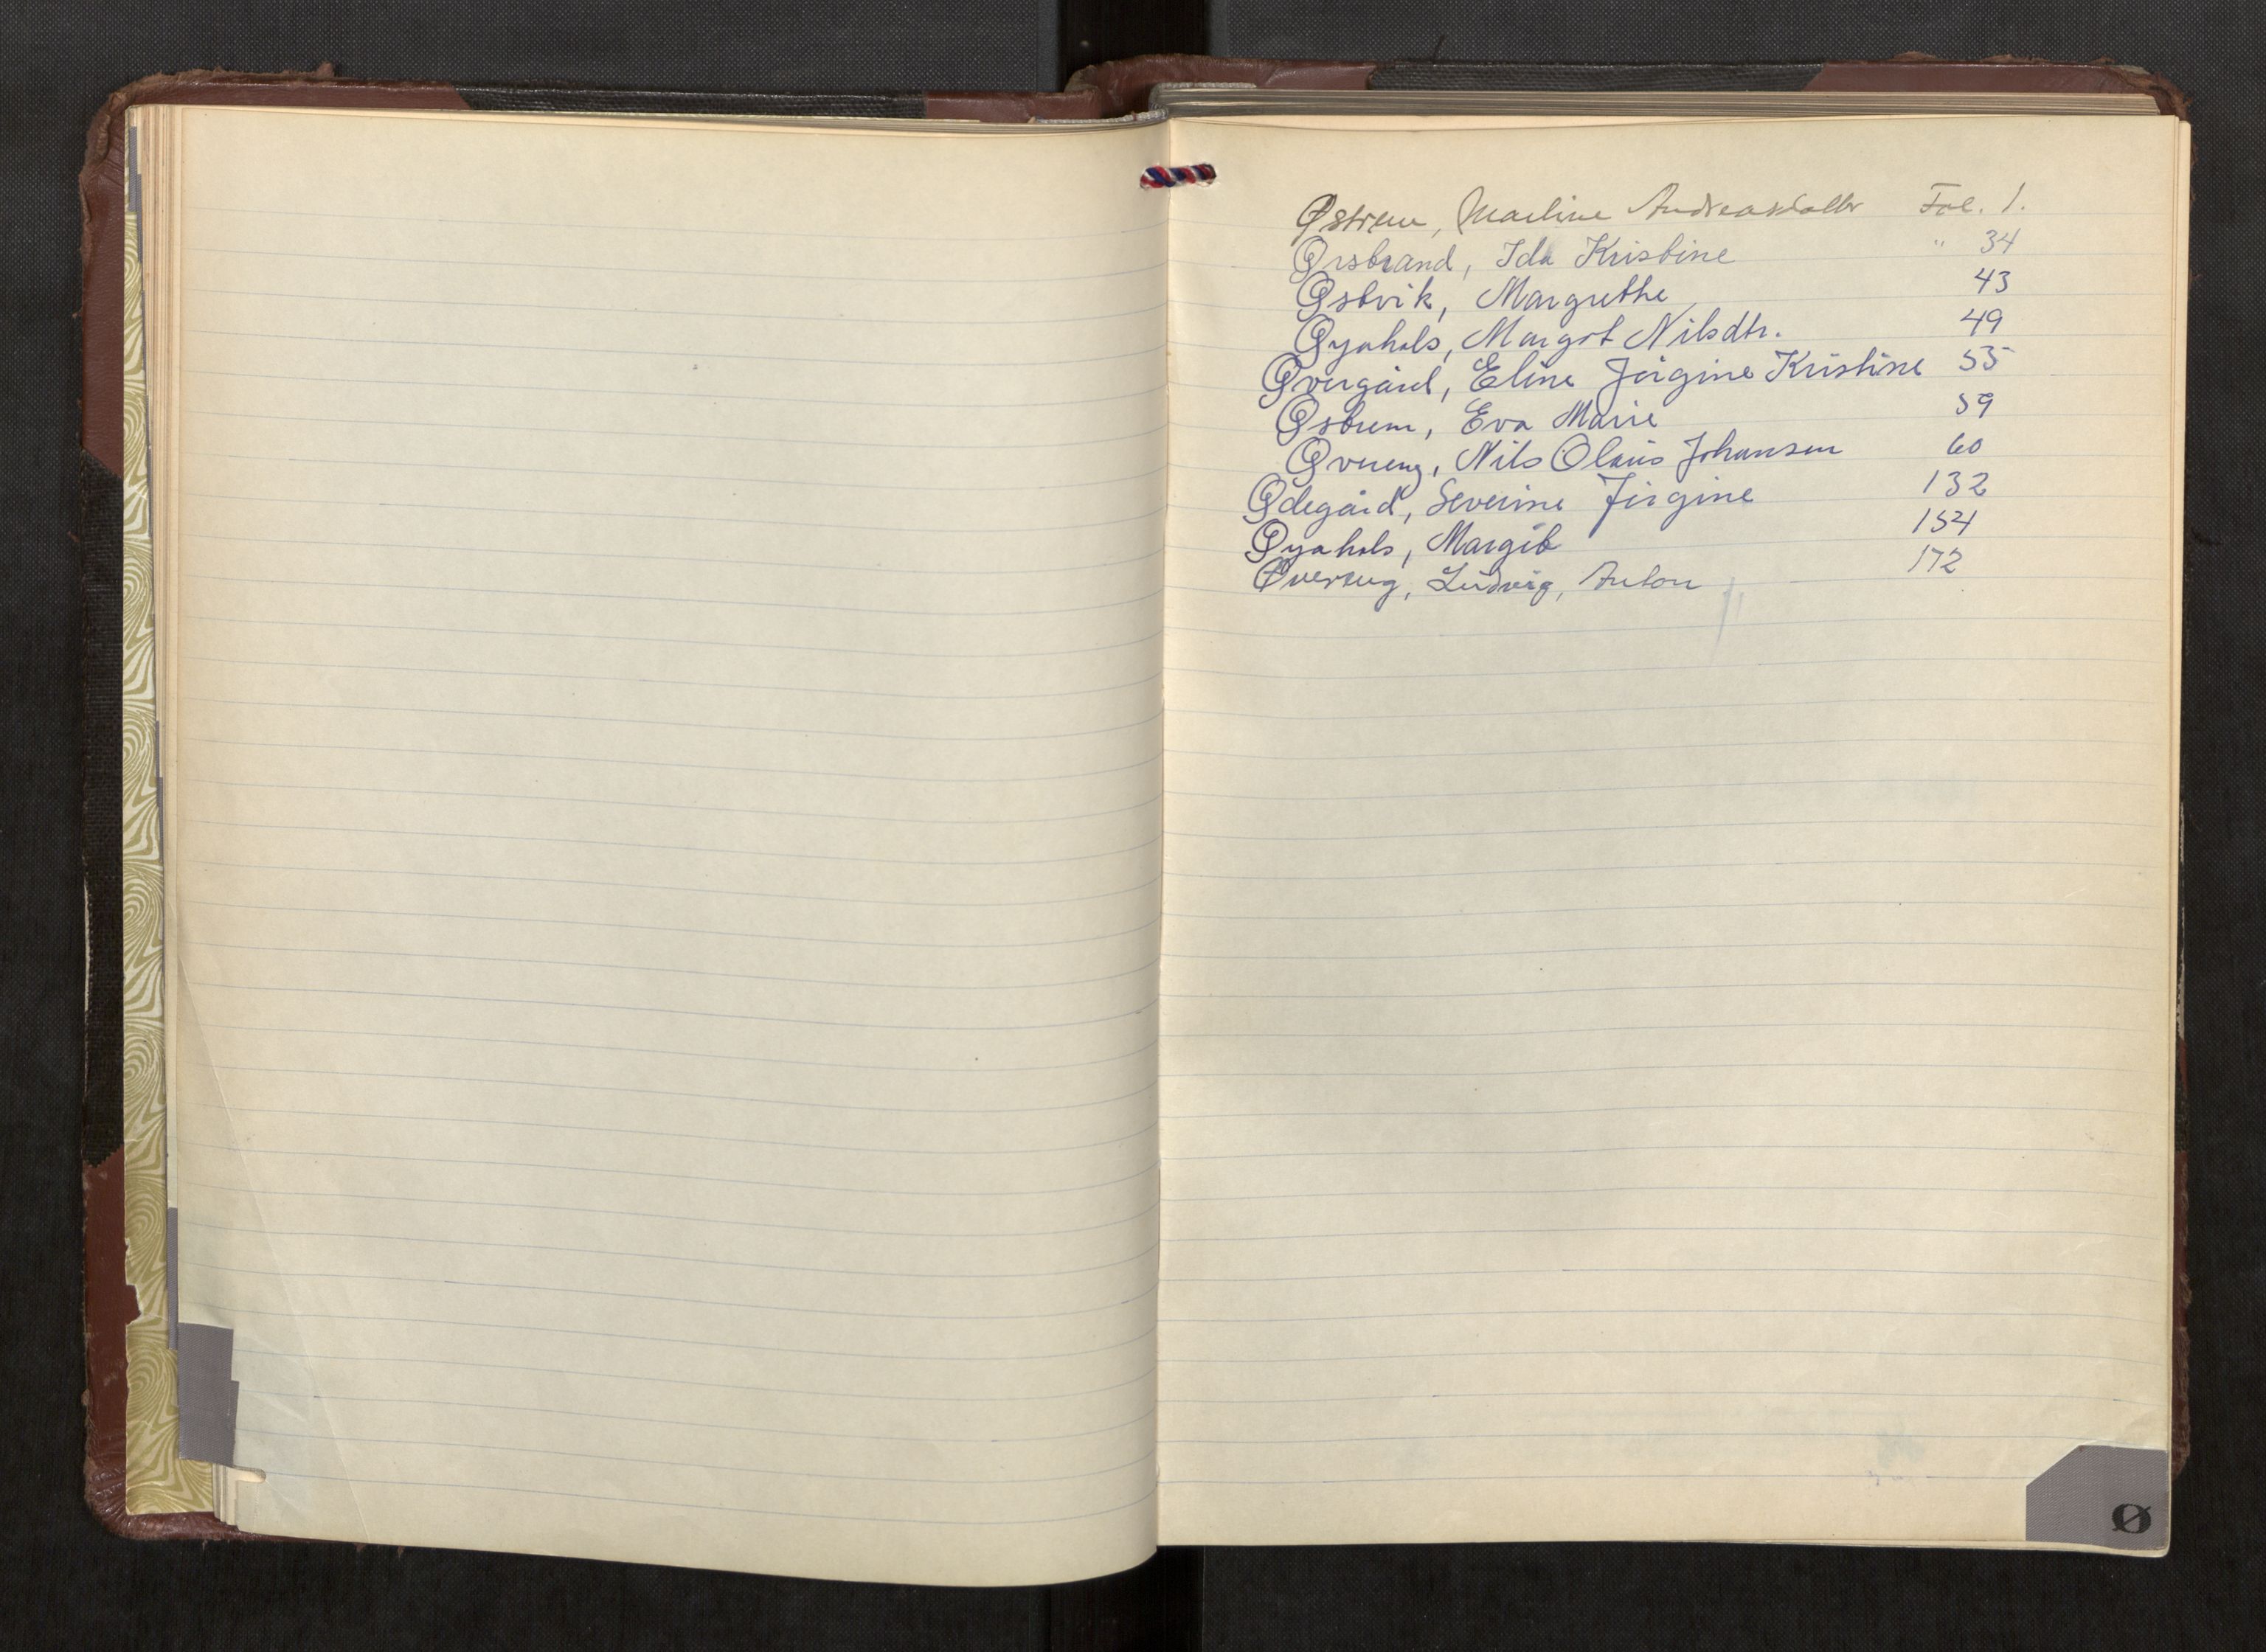 Østrem, Martine Andreasdatter Fol. 1.
Ørstrand, Ida Kristine " 34
Østvik, Margrethe 43
Øyahals, Margot Nilsdtr. 49
Øvergård, Eline Jørgine Kristine 55
Østrem, Eva Marie 59
Øvereng, Nils Olaus Johansen 60
Ødegård, Severine Jørgine 132
Øyahals, Margit 154
Øvereng, Ludvig, Anton 172
Ø